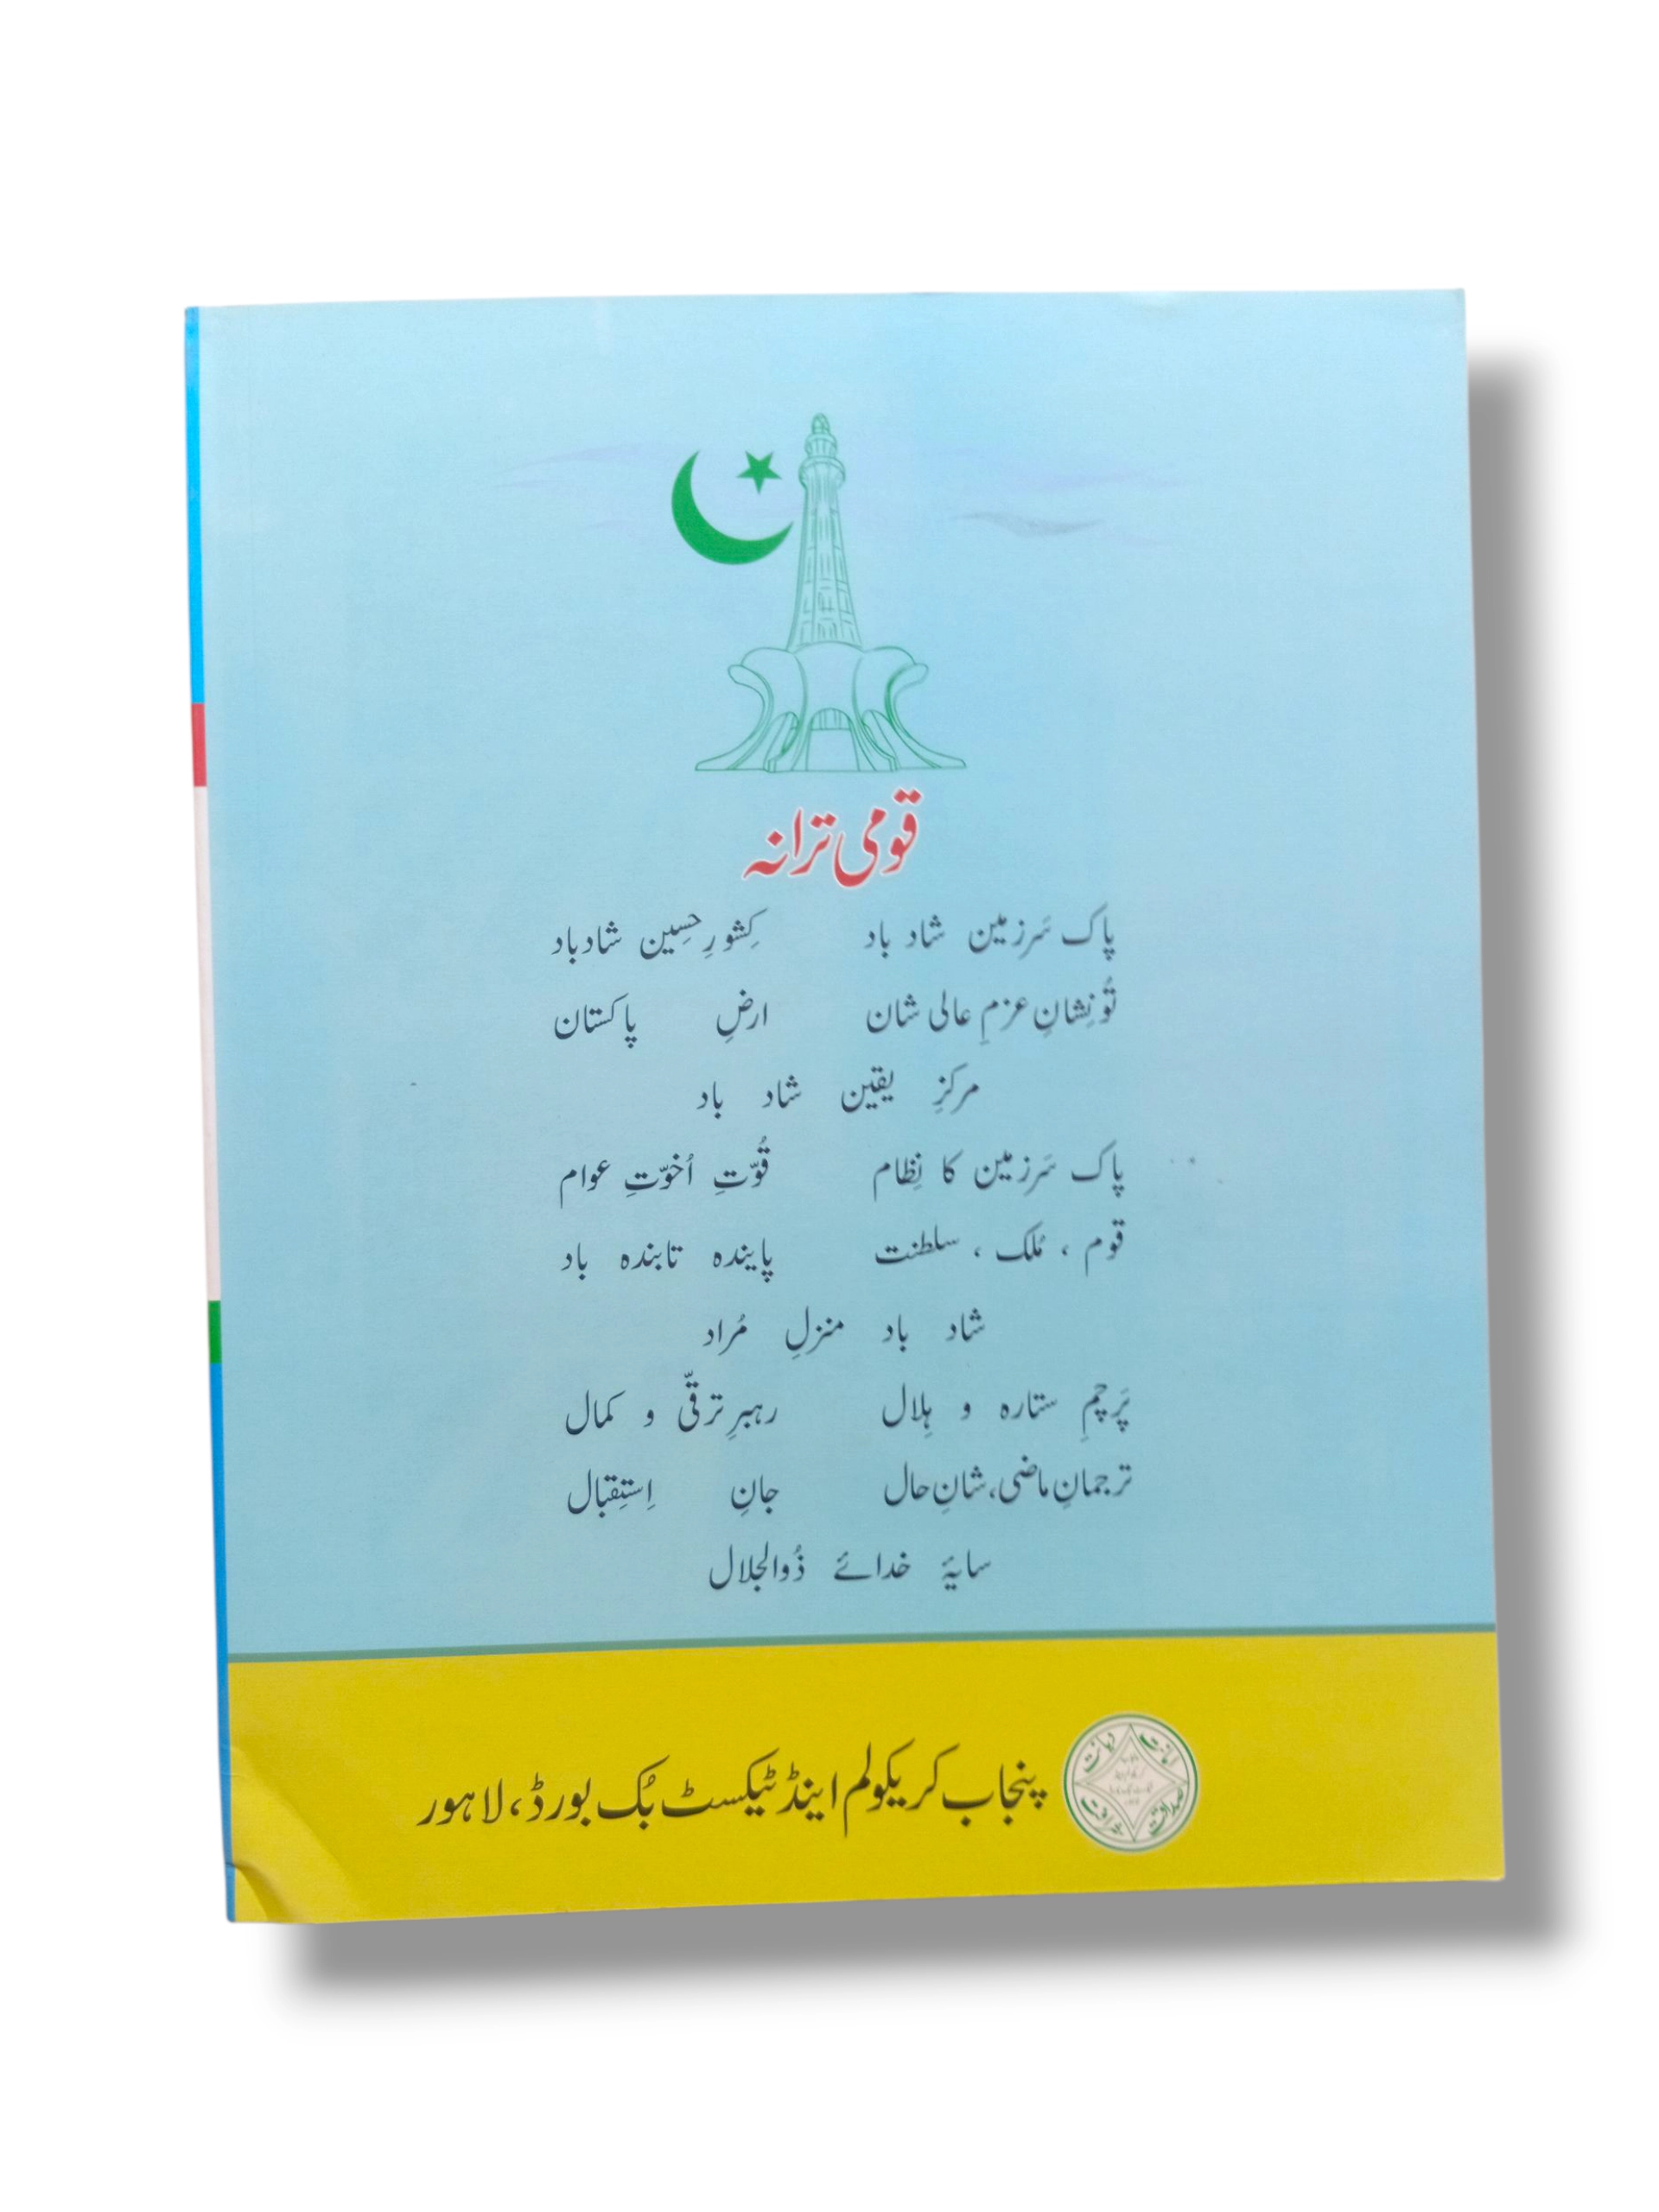 قومی ترانہ
پاک سَرزمین شاد باد کِشورِ حسِین شاد باد
تُو نِشانِ عزمِ عالی شان ارضِ پاکستان
مرکزِ یقین شاد باد
پاک سَرزمین کا نِظام قُوّتِ اُخوّتِ عوام
قوم ، مُلک ، سلطنت پایندہ تابندہ باد
شاد باد منزلِ مُراد
پَرچمِ ستارہ و ہِلال رہبرِ ترقّی و کمال
ترجمانِ ماضی، شانِ حال جانِ اِستِقبال
سایۂ خدائے ذُوالجلال
امانت دیانت
صداقت شرافت
پنجاب کریکولم اینڈ ٹیکسٹ بُک بورڈ، لاہور